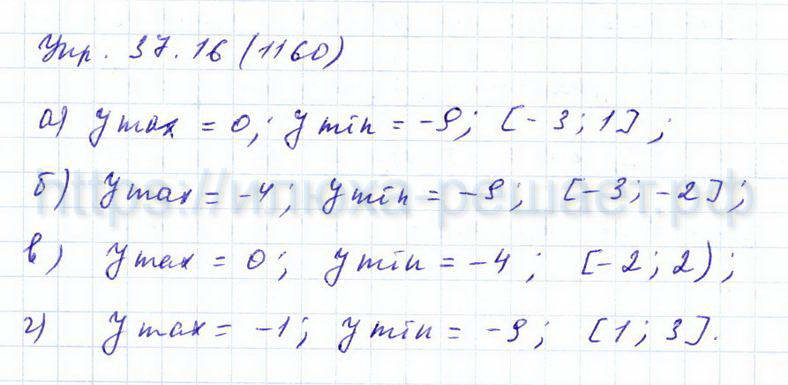 Упр. 37.16 (1160)
а) y max = 0; y min = -9; [-3; 1];
б) y max = -4; y min = -9; [-3; -2];
в) y max = 0; y min = -4; [-2; 2);
г) y max = -1; y min = -9; [1; 3].
https://илюха-решает.рф